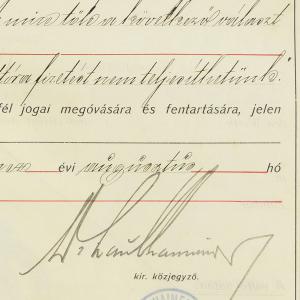 mint tőle a következő választ
fizetést nem teljesíthetünk."
fél jogai megóvására és fentartására, jelen
évi augusztus hó
kir. közjegyző.